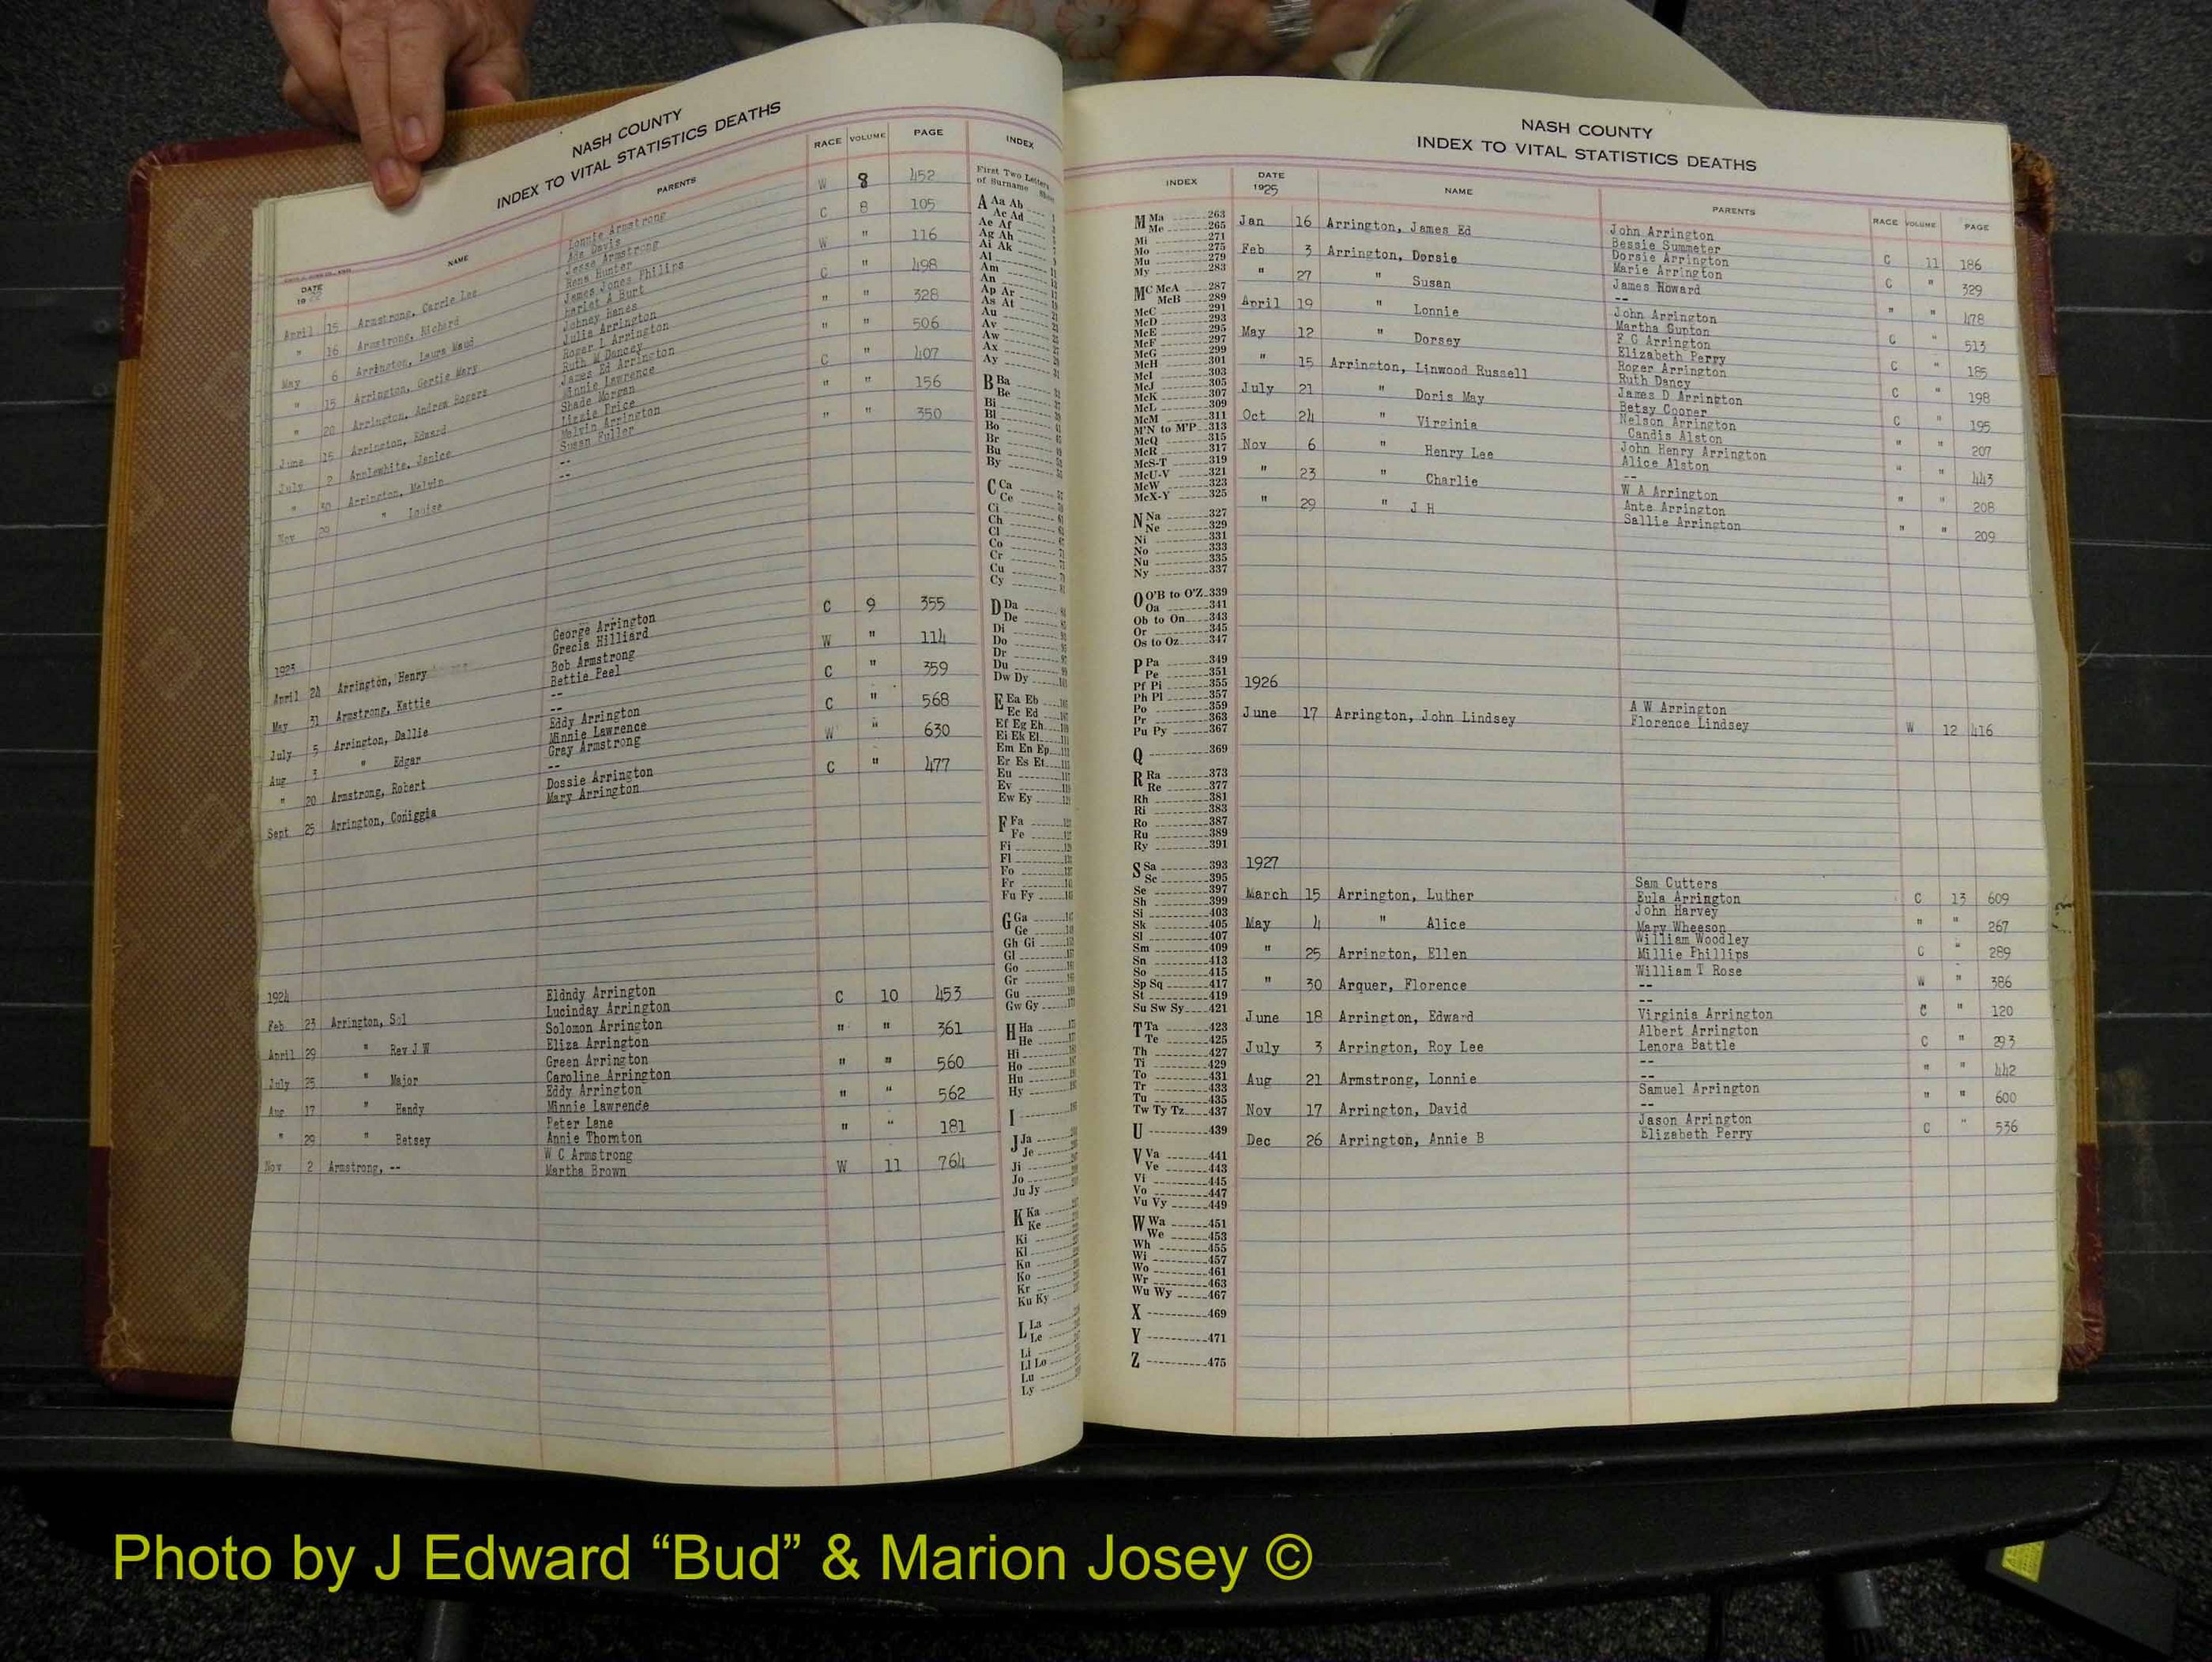 NASH COUNTY
INDEX TO VITAL STATISTICS DEATHS
DATE NAME PARENTS RACE VOLUME PAGE INDEX
1922
April 15 Armstrong, Carrie Lee Lonnie Armstrong W 8 452
Ada Davis
" 16 Armstrong, Richard Jesse Armstrong C 8 105
Rena Hunter
May 6 Arrington, Laura Maud James Jones Philips W " 116
Hariet A Burt
" 15 Arrington, Gertie Mary Johney Hanes C " 498
Julia Arrington
" 28 Arrington, Andrew Rogers Roger L Arrington " " 328
Ruth M Dancey
June 15 Arrington, Edward James Ed Arrington " " 506
Minnie Lawrence
July 2 Applewhite, Janice Shade Morgan C " 407
Lizzie Price
" 30 Arrington, Melvin Melvin Arrington " " 156
Susan Fuller
Nov 29 " Louise -- " " 350
--
1923
April 24 Arrington, Henry George Arrington C 9 355
Grecia Hilliard
May 31 Armstrong, Kattie Bob Armstrong W " 114
Bettie Peel
July 5 Arrington, Dallie -- C " 359
--
Aug 3 " Edgar Eddy Arrington C " 568
Minnie Lawrence
" 20 Armstrong, Robert Gray Armstrong W " 630
--
Sept 25 Arrington, Coniggia Dossie Arrington C " 477
Mary Arrington
1924
Feb 23 Arrington, Sol Eldndy Arrington C 10 453
Lucinday Arrington
April 29 " Rev J W Solomon Arrington " " 361
Eliza Arrington
July 25 " Major Green Arrington " " 560
Caroline Arrington
Aug 17 " Handy Eddy Arrington " " 562
Minnie Lawrence
" 29 " Betsey Peter Lane " " 181
Annie Thornton
Nov 2 Armstrong, -- W C Armstrong W 11 764
Martha Brown
First Two Letters
of Surname
A Aa Ab
Ac Ad
Ae Af
Ag Ah
Ai Ak
Al
Am
An
Ap Ar
As At
Au
Av
Aw
Ax
Ay
B Ba
Be
Bi
Bl
Bo
Br
Bu
By
C Ca
Ce
Ci
Ch
Cl
Co
Cr
Cu
Cy
D Da
De
Di
Do
Dr
Du
Dw Dy
E Ea Eb
Ec Ed
Ef Eg Eh
Ei Ek El
Em En Ep
Er Es Et
Eu
Ev
Ew Ey
F Fa
Fe
Fi
Fl
Fo
Fr
Fu Fy
G Ga
Ge
Gh Gi
Gl
Go
Gr
Gu
Gw Gy
H Ha
He
Hi
Ho
Hu
Hy
I
J Ja
Je
Ji
Jo
Ju Jy
K Ka
Ke
Ki
Kl
Kn
Ko
Kr
Ku Ky
L La
Le
Li
Ll Lo
Lu
Ly
NASH COUNTY
INDEX TO VITAL STATISTICS DEATHS
INDEX DATE NAME PARENTS RACE VOLUME PAGE
M Ma 263
Me 265
Mi 271
Mo 275
Mu 279
My 283
Mc McA 287
McB 289
McC 291
McD 293
McE 295
McF 297
McG 299
McH 301
McI 303
McJ 305
McK 307
McL 309
McM 311
M'N to M'P 313
McQ 315
McR 317
McS-T 319
McU-V 321
McW 323
McX-Y 325
N Na 327
Ne 329
Ni 331
No 333
Nu 335
Ny 337
O O'B to O'Z 339
Oa 341
Ob to On 343
Or 345
Os to Oz 347
P Pa 349
Pe 351
Pf Pi 355
Ph Pl 357
Po 359
Pr 363
Pu Py 367
Q 369
R Ra 373
Re 377
Rh 381
Ri 383
Ro 387
Ru 389
Ry 391
S Sa 393
Sc 395
Se 397
Sh 399
Si 403
Sk 405
Sl 407
Sm 409
Sn 413
So 415
Sp Sq 417
St 419
Su Sw Sy 421
T Ta 423
Te 425
Th 427
Ti 429
To 431
Tr 433
Tu 435
Tw Ty Tz 437
U 439
V Va 441
Ve 443
Vi 445
Vo 447
Vu Vy 449
W Wa 451
We 453
Wh 455
Wi 457
Wo 461
Wr 463
Wu Wy 467
X 469
Y 471
Z 475
1925
Jan 16 Arrington, James Ed John Arrington C 11 186
Bessie Summeter
Feb 3 Arrington, Dorsie Dorsie Arrington C " 329
Marie Arrington
" 27 " Susan James Howard " " 478
--
April 19 " Lonnie John Arrington C " 513
Martha Supton
May 12 " Dorsey F G Arrington C " 185
Elizabeth Perry
" 15 Arrington, Linwood Russell Roger Arrington C " 198
Ruth Dancy
July 21 " Doris May James D Arrington C " 195
Betsy Cooper
Oct 24 " Virginia Nelson Arrington " " 207
Candis Alston
Nov 6 " Henry Lee John Henry Arrington " " 443
Alice Alston
" 23 " Charlie -- " " 208
W A Arrington
" 29 " J H Ante Arrington " " 209
Sallie Arrington
1926
June 17 Arrington, John Lindsey A W Arrington W 12 416
Florence Lindsey
1927
March 15 Arrington, Luther Sam Cutters C 13 609
Eula Arrington
May 4 " Alice John Harvey " " 267
Mary Wheeson
" 25 Arrington, Ellen William Woodley C " 289
Millie Phillips
" 30 Arquer, Florence William T Rose W " 386
--
June 18 Arrington, Edward -- C " 120
Virginia Arrington
July 3 Arrington, Roy Lee Albert Arrington C " 293
Lenora Battle
Aug 21 Armstrong, Lonnie -- " " 442
--
Nov 17 Arrington, David Samuel Arrington " " 600
--
Dec 26 Arrington, Annie B Jason Arrington C " 536
Elizabeth Perry
Photo by J Edward “Bud” & Marion Josey ©